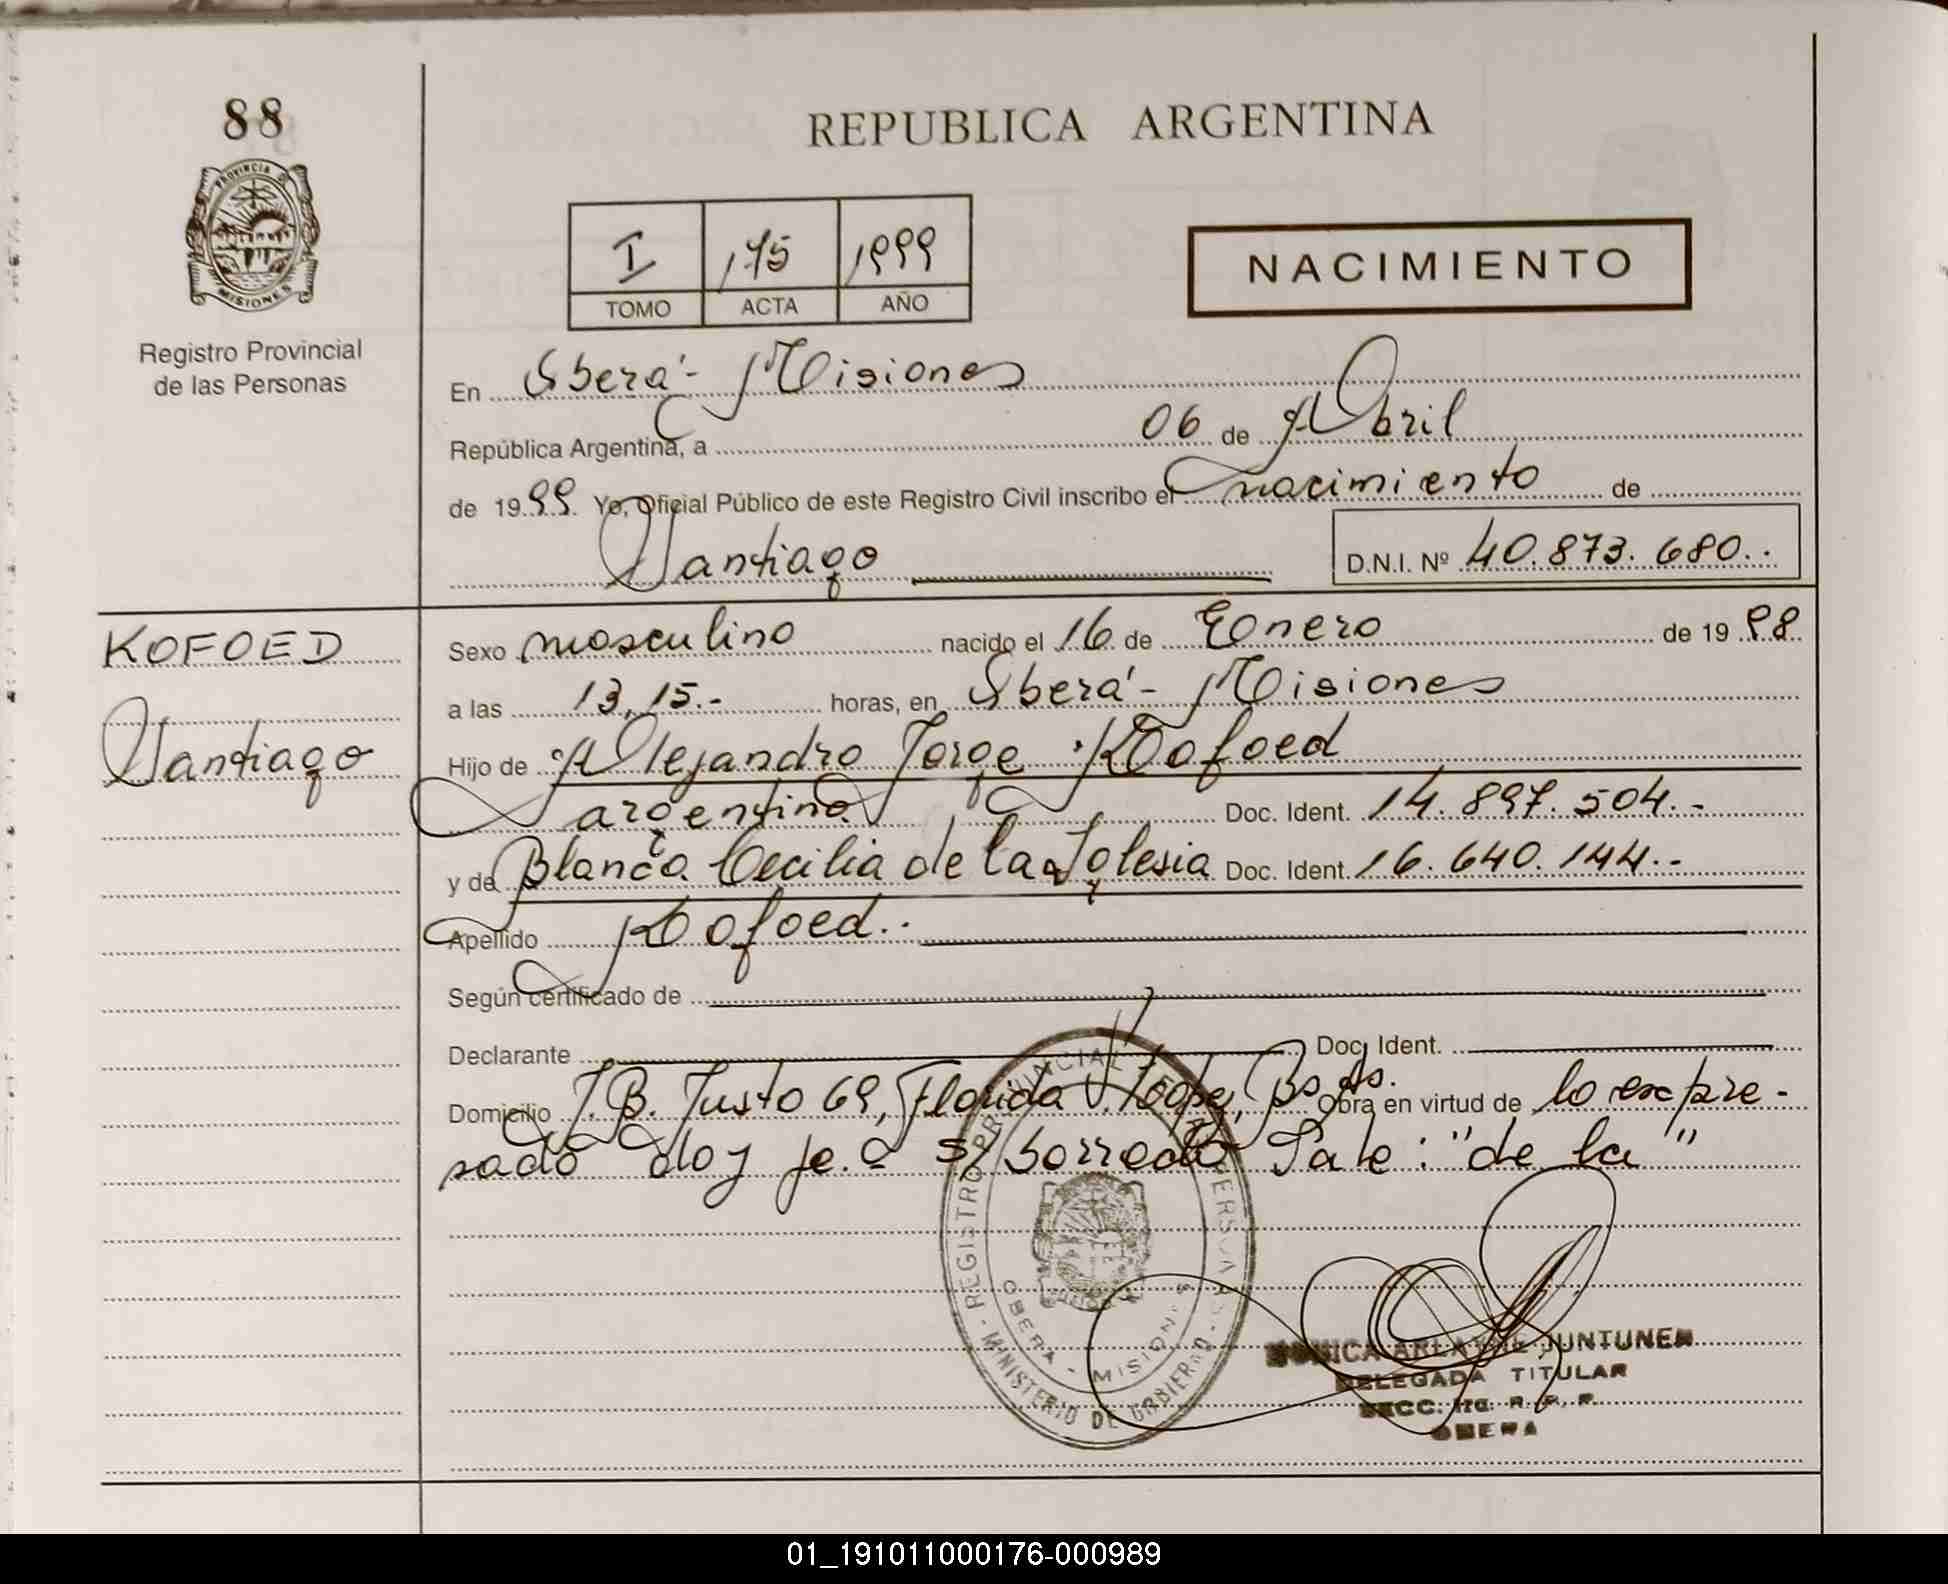 88
REPUBLICA ARGENTINA
PROVINCIA DE
MISIONES
I 175 1999
TOMO ACTA AÑO
NACIMIENTO
Registro Provincial
de las Personas
En Oberá - Misiones
República Argentina, a 06 de Abril
de 1999 Yo, Oficial Público de este Registro Civil inscribo el nacimiento de
Santiago
D.N.I. Nº 40.873.680..
KOFOED
Santiago
Sexo masculino nacido el 16 de Enero de 1998
a las 13,15.- horas, en Oberá - Misiones
Hijo de Alejandro Jorge Kofoed
argentino Doc. Ident. 14.897.504.-
y de Blanca Cecilia de la Iglesia Doc. Ident. 16.640.144.-
Apellido Kofoed..
Según certificado de
Declarante Doc. Ident.
Domicilio J.B. Justo 69, Florida V. Bs As. Obra en virtud de lo expre-
sado doy fe.- S/ borrado Vale: "de la"
REGISTRO PROVINCIAL DE PERSONAS
OBERA - MISIONES
MINISTERIO DE GOBIERNO
MONICA ARLAYNE JUNTUNEN
DELEGADA TITULAR
SECC. 1ra. R. P. P.
OBERA
01_191011000176-000989